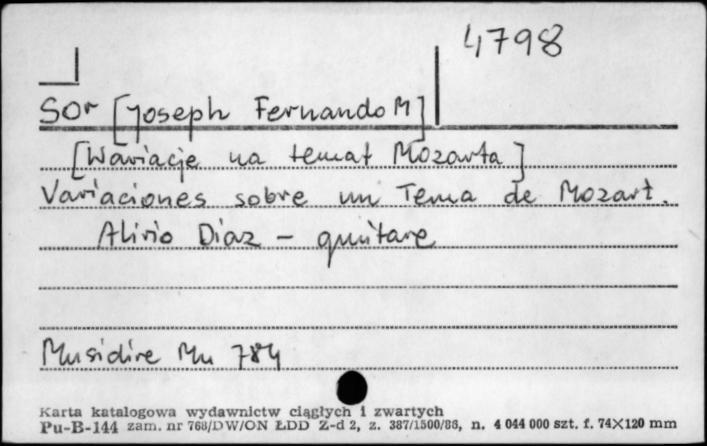 4798
Sor [Joseph Fernando M]
[Wariacje na temat Mozarta]
Variaciones sobre un Tema de Mozart.
Alirio Diaz – guitare
Musidire Mu 784
Karta katalogowa wydawnictw ciągłych i zwartych
Pu-B-144 zam. nr 768/DW/ON ŁDD Z-d 2, z. 387/1500/86, n. 4 044 000 szt. f. 74×120 mm